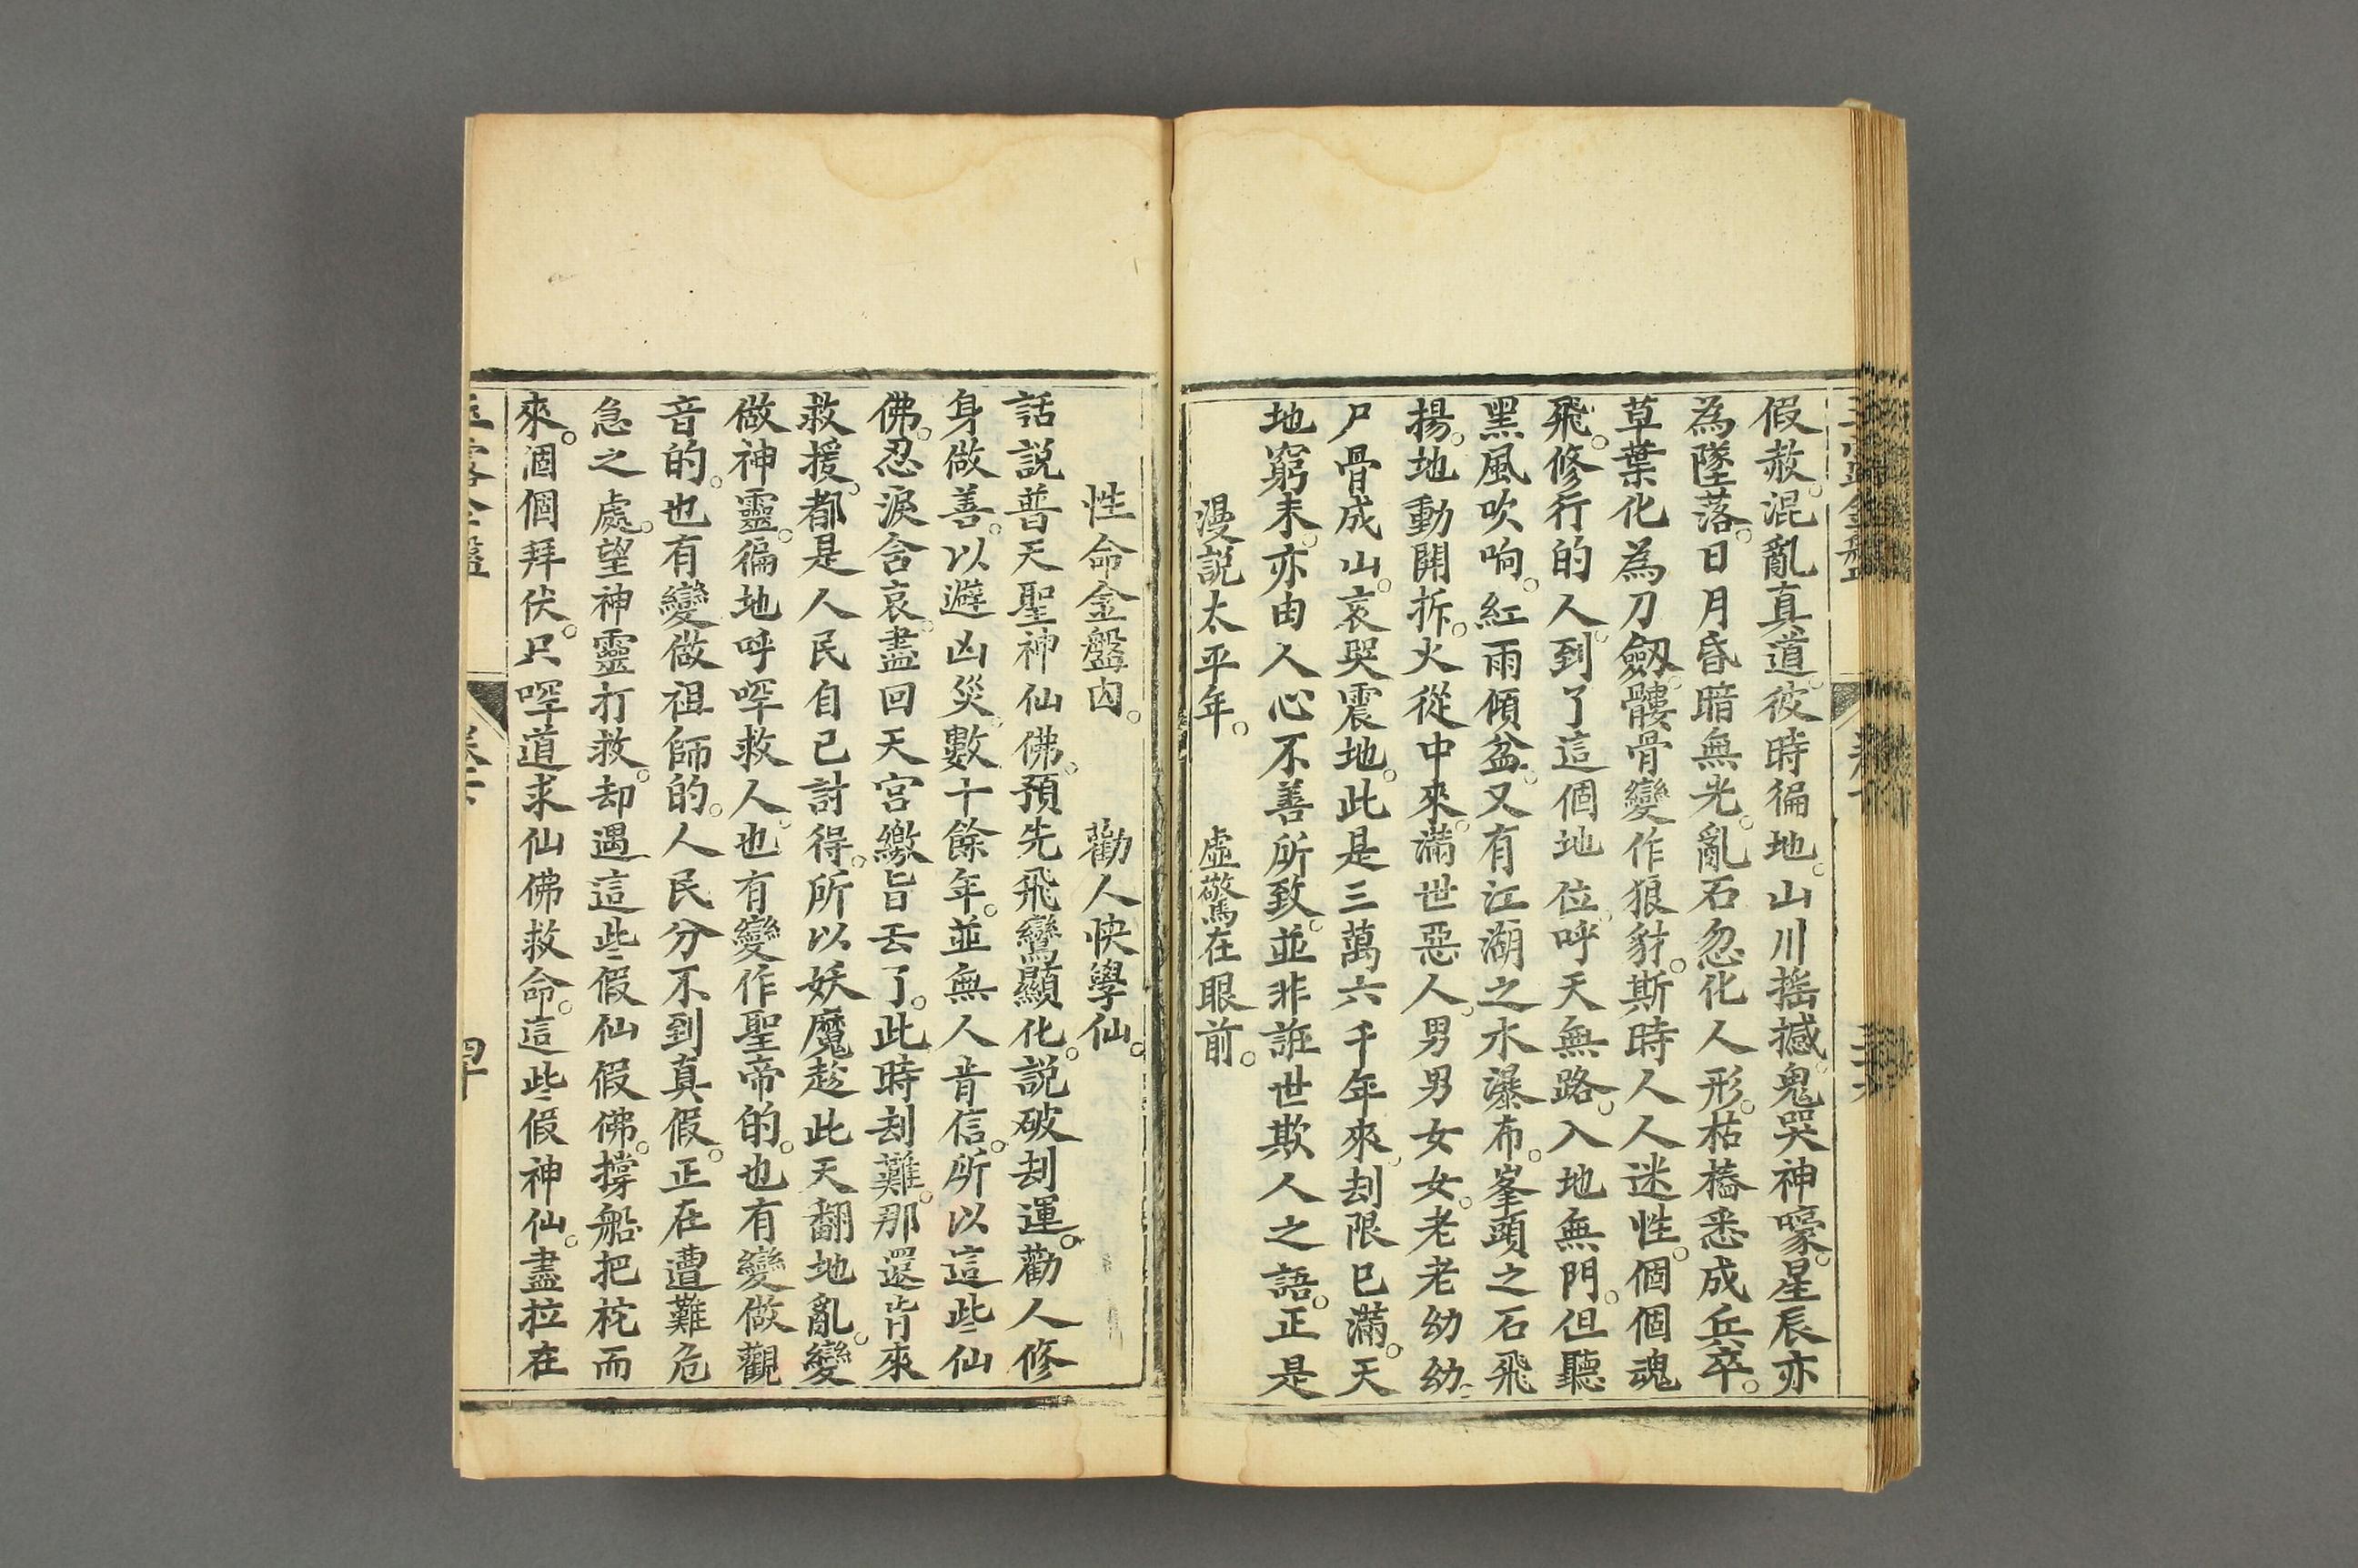 假赦。混亂真道。彼時徧地。山川搖撼。鬼哭神嚎。星辰亦
為墜落。日月昏暗無光。亂石忽化人形。枯蓁悉成兵卒。
草葉化為刀劒。髏骨變作狼豺。斯時人人迷性。個個魂
飛。修行的人。到了這個地位。呼天無路。入地無門。但聽
黑風吹响。紅雨傾盆。又有江湖之水瀑布。峯頭之石飛
揚。地動開拆。火從中來。滿世惡人。男男女女。老老幼幼。
尸骨成山。哀哭震地。此是三萬六千年來。刦限已滿。天
地窮末。亦由人心不善所致。並非誑世欺人之語。正是
漫說太平年。 虛驚在眼前。
性命金盤內。 勸人快學仙。
話説普天聖神仙佛。預先飛鸞顯化。説破刦運。勸人修
身做善。以避凶災。數十餘年。並無人音信。所以這些仙
佛。忍淚含哀。盡回天宮繳旨去了。此時刦難。那還肯來
救援。都是人民自己討得。所以妖魔趁此天翻地亂。變
做神靈。徧地呼喚救人。也有變作聖帝的。也有變做觀
音的。也有變做祖師的。人民分不到真假。正在遭難危
急之處。望神靈打救。却遇這些假仙假佛。撐船把柁而
來。個個拜伏。只喊道求仙佛救命。這些假神仙。盡拉在
卷下
四十